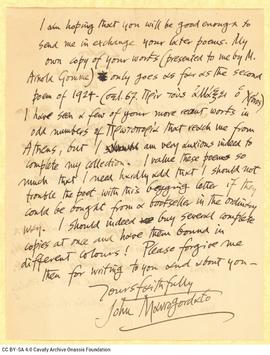 I am hoping that you will be good enough to
send me in exchange your later poems. My
own copy of your works (presented to me by M.
Arnold Gomme) only goes as far as the second
poem of 1924. (σελ. 67. Πρὶν τοὺς ἀλλάξει ὁ Χρόνος)
I have seen a few of your more recent works in
odd numbers of that reach me from
Athens, but I am very anxious indeed to
complete my collection. I value these poems so
much that I need hardly add that I should not
trouble the poet with this begging letter if they
could be bought from a bookseller in the ordinary
way. I should indeed buy several complete
copies at one and have them bound in
different colours! Please forgive me
then for writing to you and about you—
Yours faithfully
John Mavrogordato
CC BY-SA 4.0 Cavafy Archive Onassis Foundation